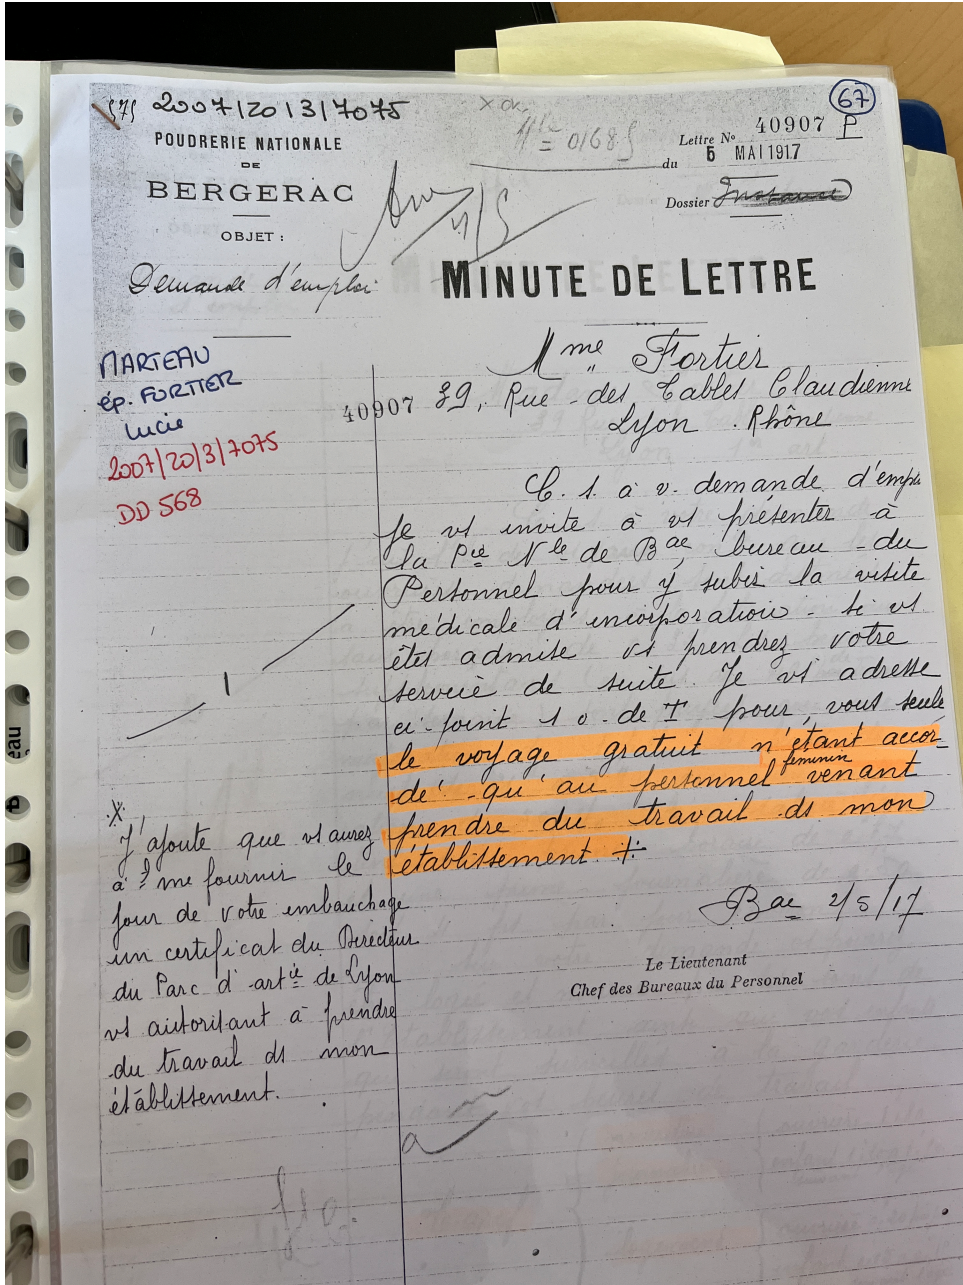 2007/20/3/7075
67
POUDRERIE NATIONALE
DE
BERGERAC
OBJET :
Demande d'emploi
Mle 0168
Lettre No 40907 P
du 5 MAI 1917
Dossier
MINUTE DE LETTRE
MARTEAU
ép. FORTIER
Lucie
2007/20/3/7075
DD 568
Mme Fortier
40907 39, Rue des Tables Claudienne
Lyon . Rhône
C. s. à v. demande d'emploi
Je vs invite à vs présenter à
la Pie Nle de Bac, bureau du
Personnel pour y subir la visite
médicale d'incorporation - Si vs
êtes admise vs prendrez votre
service de suite. Je vs adresse
ci-joint 1 o. de T pour vous seule
le voyage gratuit n'étant accor-
dé qu'au personnel féminin venant
prendre du travail ds mon
établissement +
Bac 2/5/17
Le Lieutenant
Chef des Bureaux du Personnel
J'ajoute que vs aurez
à me fournir le
jour de votre embauchage
un certificat du Directeur
du Parc d'artie de Lyon
vs autorisant à prendre
du travail ds mon
établissement.
eau